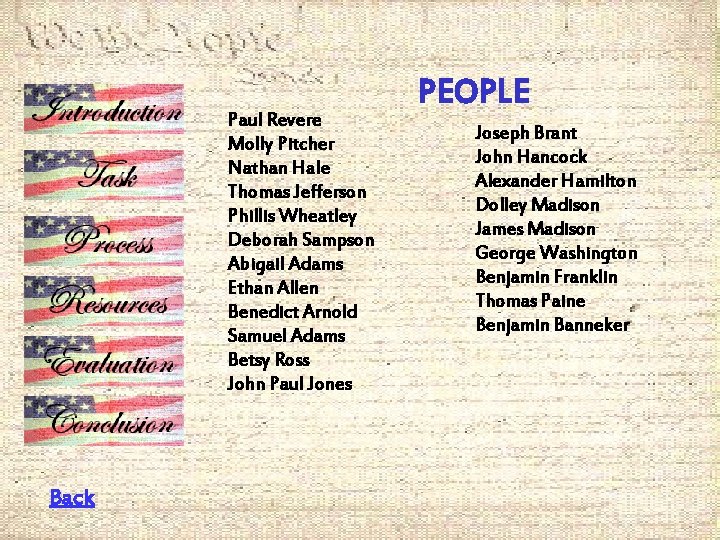 We the People
PEOPLE
Introduction
Task
Process
Resources
Evaluation
Conclusion
Back
Paul Revere
Molly Pitcher
Nathan Hale
Thomas Jefferson
Phillis Wheatley
Deborah Sampson
Abigail Adams
Ethan Allen
Benedict Arnold
Samuel Adams
Betsy Ross
John Paul Jones
Joseph Brant
John Hancock
Alexander Hamilton
Dolley Madison
James Madison
George Washington
Benjamin Franklin
Thomas Paine
Benjamin Banneker